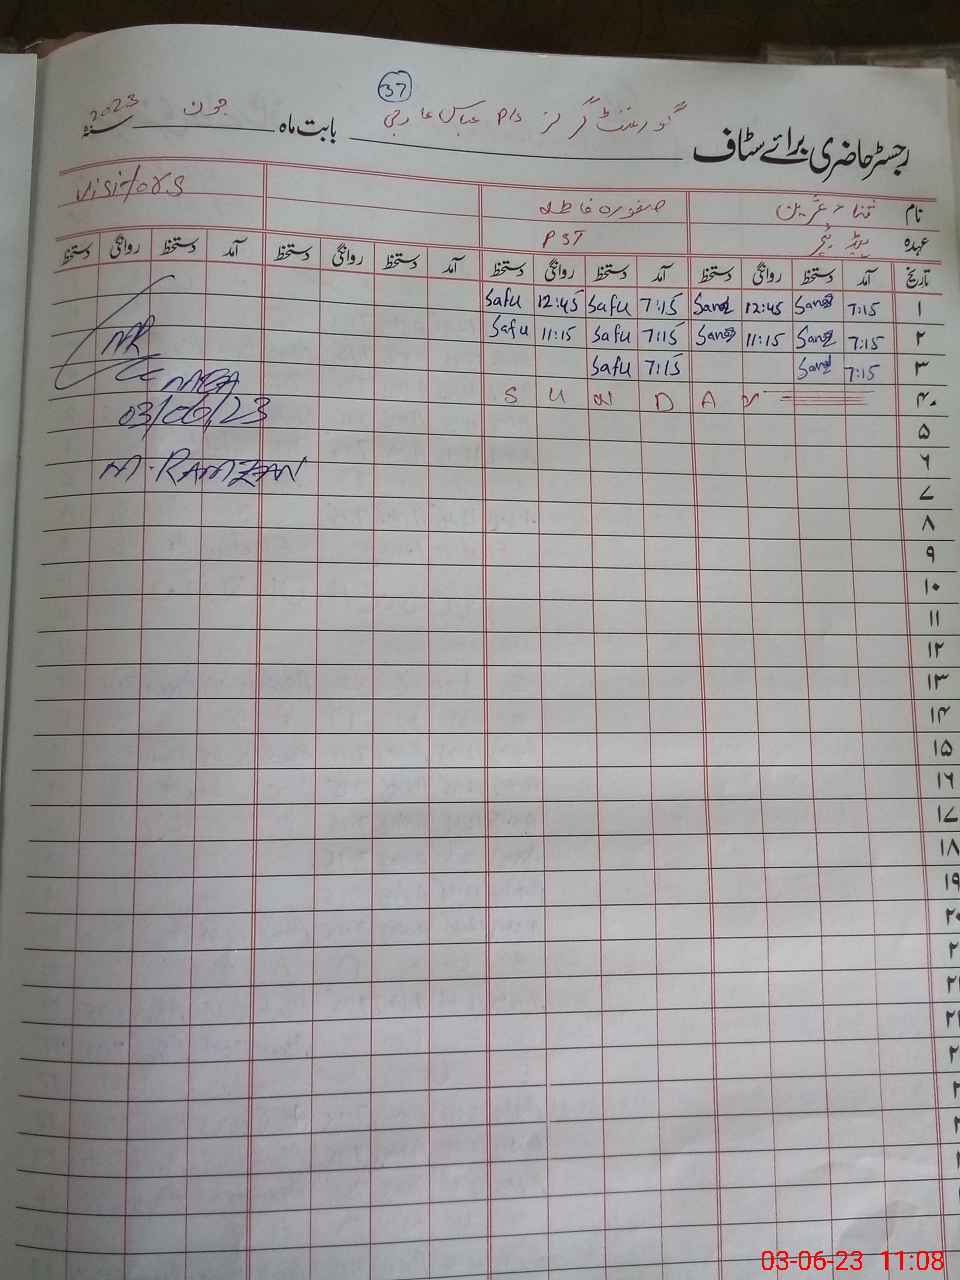 37
رجسٹر حاضری برائے سٹاف گورنمنٹ گرلز P/S عباس بابت ماہ جون سنہ 2023
نام صفورہ فاطمہ Visitors
عہدہ ہیڈ ٹیچر PST
تاریخ آمد دستخط روانگی دستخط آمد دستخط روانگی دستخط آمد دستخط روانگی دستخط آمد دستخط روانگی دستخط
۱ 7:15 Sana 12:45 Sana 7:15 Safu 12:45 Safu
۲ 7:15 Sana 11:15 Sana 7:15 Safu 11:15 Safu
۳ 7:15 Sana 7:15 Safu
۴ S U N D A Y
MEA
03/06/23
M. RAMZAN
۵
۶
۷
۸
۹
۱۰
۱۱
۱۲
۱۳
۱۴
۱۵
۱۶
۱۷
۱۸
۱۹
۲۰
03-06-23 11:08